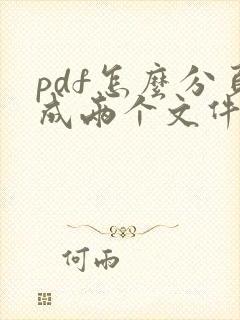 pdf怎麼分頁
成兩个文件
何雨